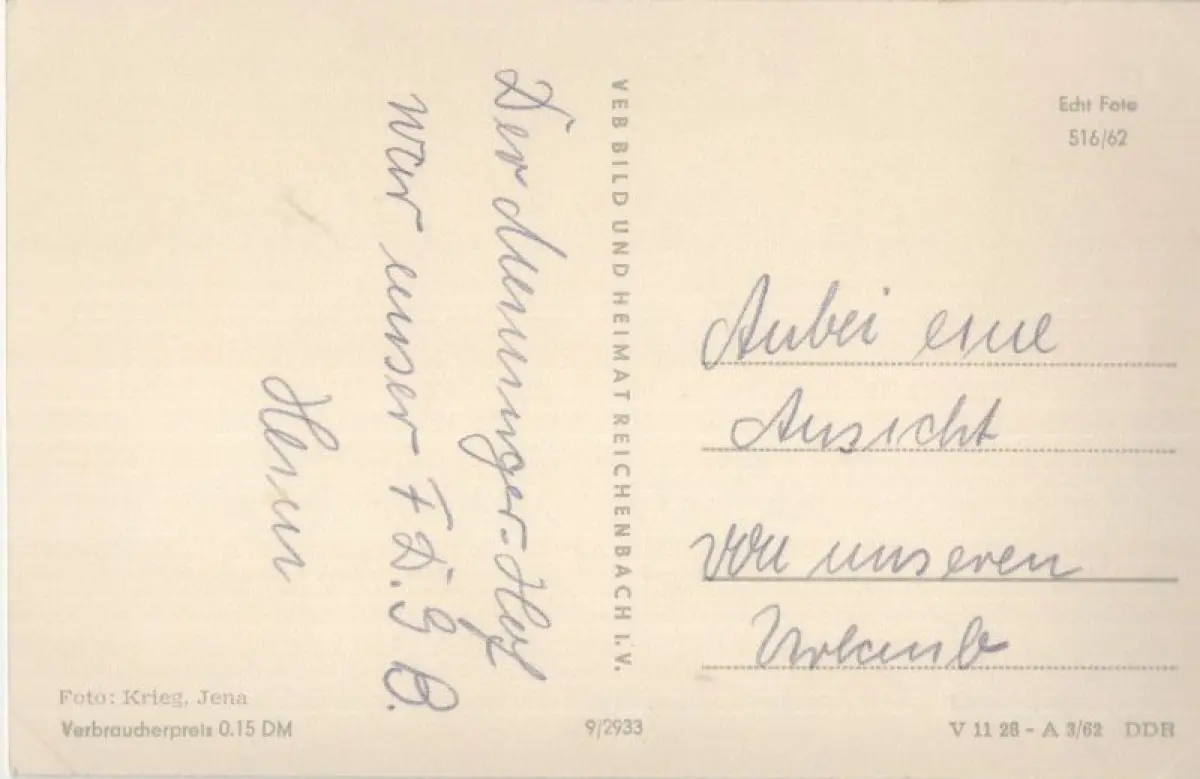 Echt Foto
516/62
Der Meininger-Hof
war unser F D. G B.
Heim
VEB BILD UND HEIMAT REICHENBACH I. V.
Anbei eine
Ansicht
von unseren
Urlaub
Foto: Krieg, Jena
Verbraucherpreis 0.15 DM
9/2933
V 11 28 - A 3/62 DDR